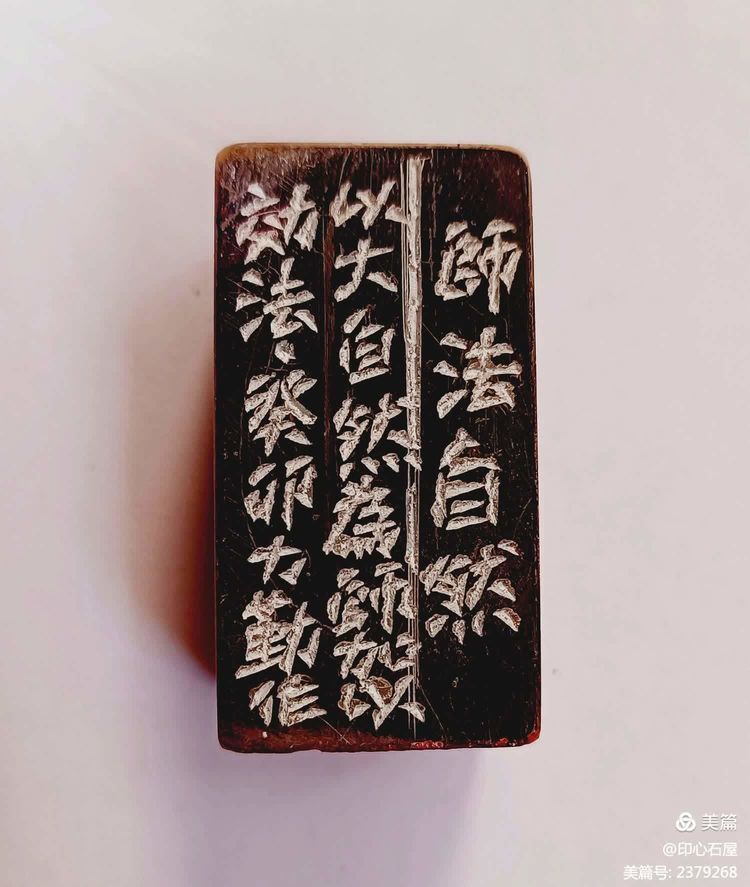 師法自然
以大自然為師加以
効法癸卯力勤作
美篇
@印心石屋
美篇号: 2379268